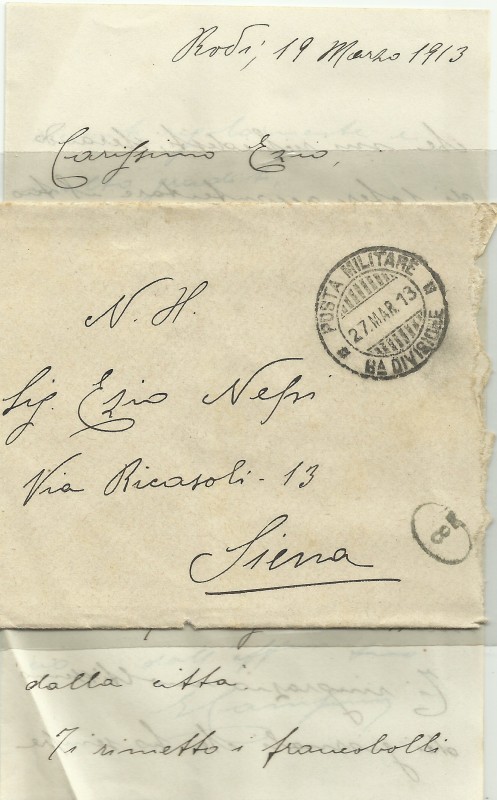 Rodi, 19 Marzo 1913
Carissimo Ezio,
POSTA MILITARE
27.MAR.13
6A DIVISIONE
N. H.
Sig. Ezio Nessi
Via Ricasoli - 13
Siena
dalla città
Ti rimetto i francobolli